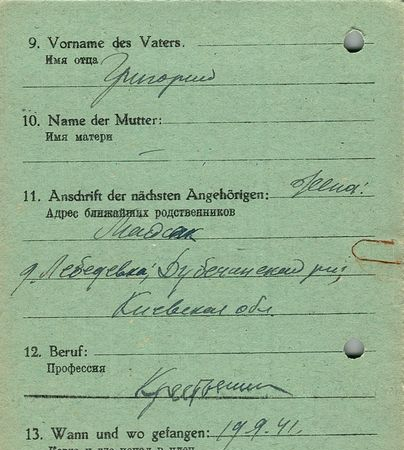 9. Vorname des Vaters.
Имя отца
Григорий
10. Name der Mutter:
Имя матери
—
11. Anschrift der nächsten Angehörigen: Жена:
Адрес ближайших родственников
д. Лебедевка,
Киевская обл.
12. Beruf:
Профессия
Крестьянин
13. Wann und wo gefangen: 19.9.41.